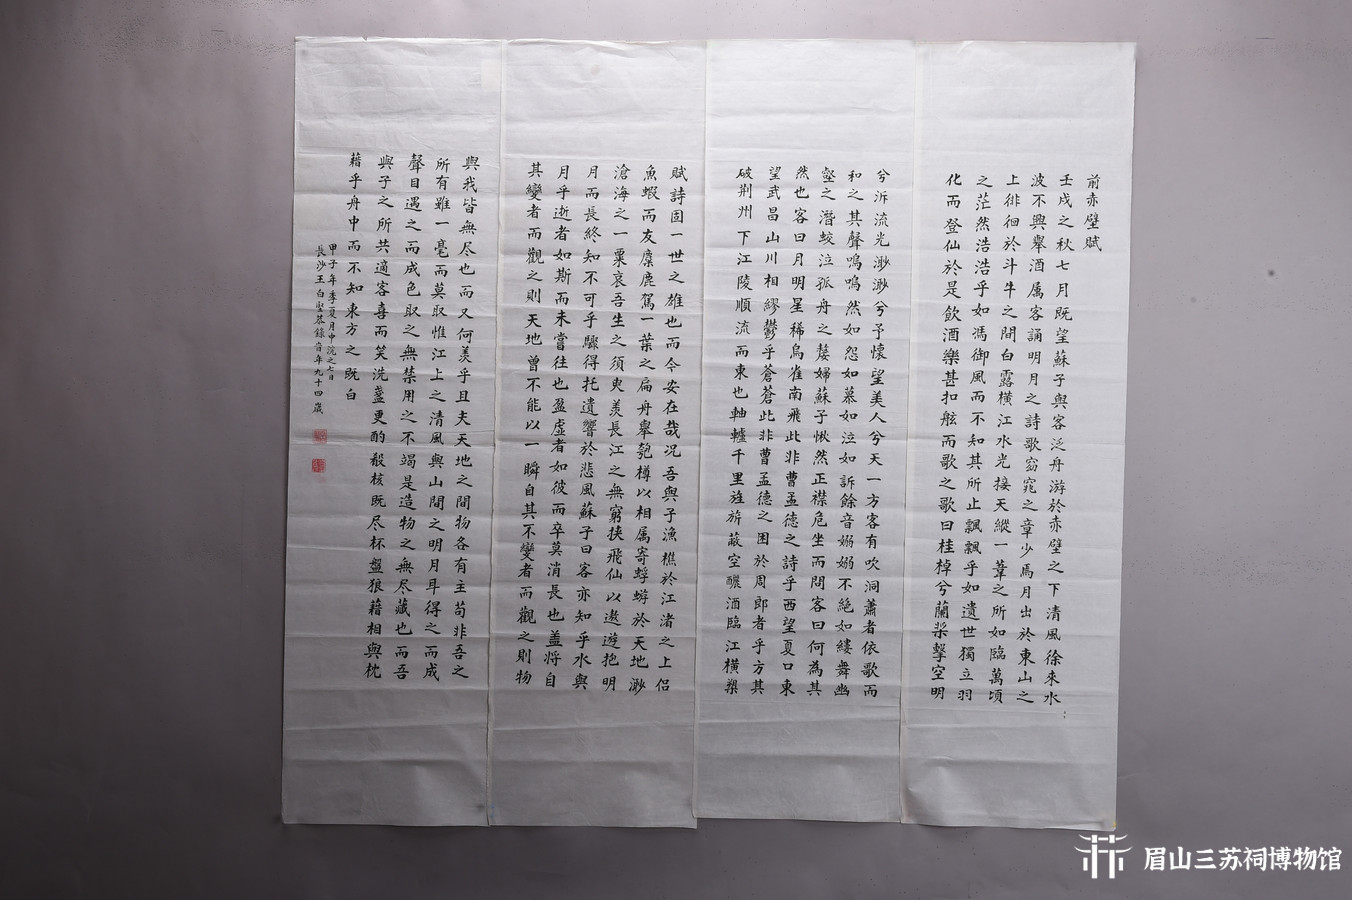 前赤壁賦
壬戌之秋七月既望蘇子與客泛舟游於赤壁之下清風徐來水
波不興舉酒属客誦明月之詩歌窈窕之章少焉月出於東山之
上徘徊於斗牛之間白露橫江水光接天縱一葦之所如臨萬頃
之茫然浩浩乎如馮御風而不知其所止飄飄乎如遺世獨立羽
化而登仙於是飲酒樂甚扣舷而歌之歌曰桂棹兮蘭槳擊空明
兮泝流光渺渺兮予懷望美人兮天一方客有吹洞蕭者依歌而
和之其聲嗚嗚然如怨如慕如泣如訴餘音嫋嫋不絕如縷舞幽
壑之潛蛟泣孤舟之嫠婦蘇子愀然正襟危坐而問客曰何為其
然也客曰月明星稀烏雀南飛此非曹孟德之詩乎西望夏口東
望武昌山川相繆鬱乎蒼蒼此非曹孟德之困於周郎者乎方其
破荆州下江陵順流而東也舳艫千里旌旂蔽空釃酒臨江橫槊
賦詩固一世之雄也而今安在哉况吾與子漁樵於江渚之上侣
魚蝦而友麋鹿駕一葉之扁舟舉匏樽以相属寄蜉蝣於天地渺
滄海之一粟哀吾生之須臾羡長江之無窮挾飛仙以遨遊抱明
月而長終知不可乎驟得托遺響於悲風蘇子曰客亦知乎水與
月乎逝者如斯而未嘗往也盈虛者如彼而卒莫消長也盖将自
其變者而觀之則天地曾不能以一瞬自其不變者而觀之則物
與我皆無尽也而又何羡乎且夫天地之間物各有主苟非吾之
所有雖一毫而莫取惟江上之清風與山間之明月耳得之而成
聲目遇之而成色取之無禁用之不竭是造物之無尽藏也而吾
與子之所共適客喜而笑洗盞更酌殽核既尽杯盤狼藉相與枕
藉乎舟中而不知東方之既白
甲子年季夏月中浣之七日
長沙王白堅恭錄旹年九十四歲
眉山三苏祠博物馆